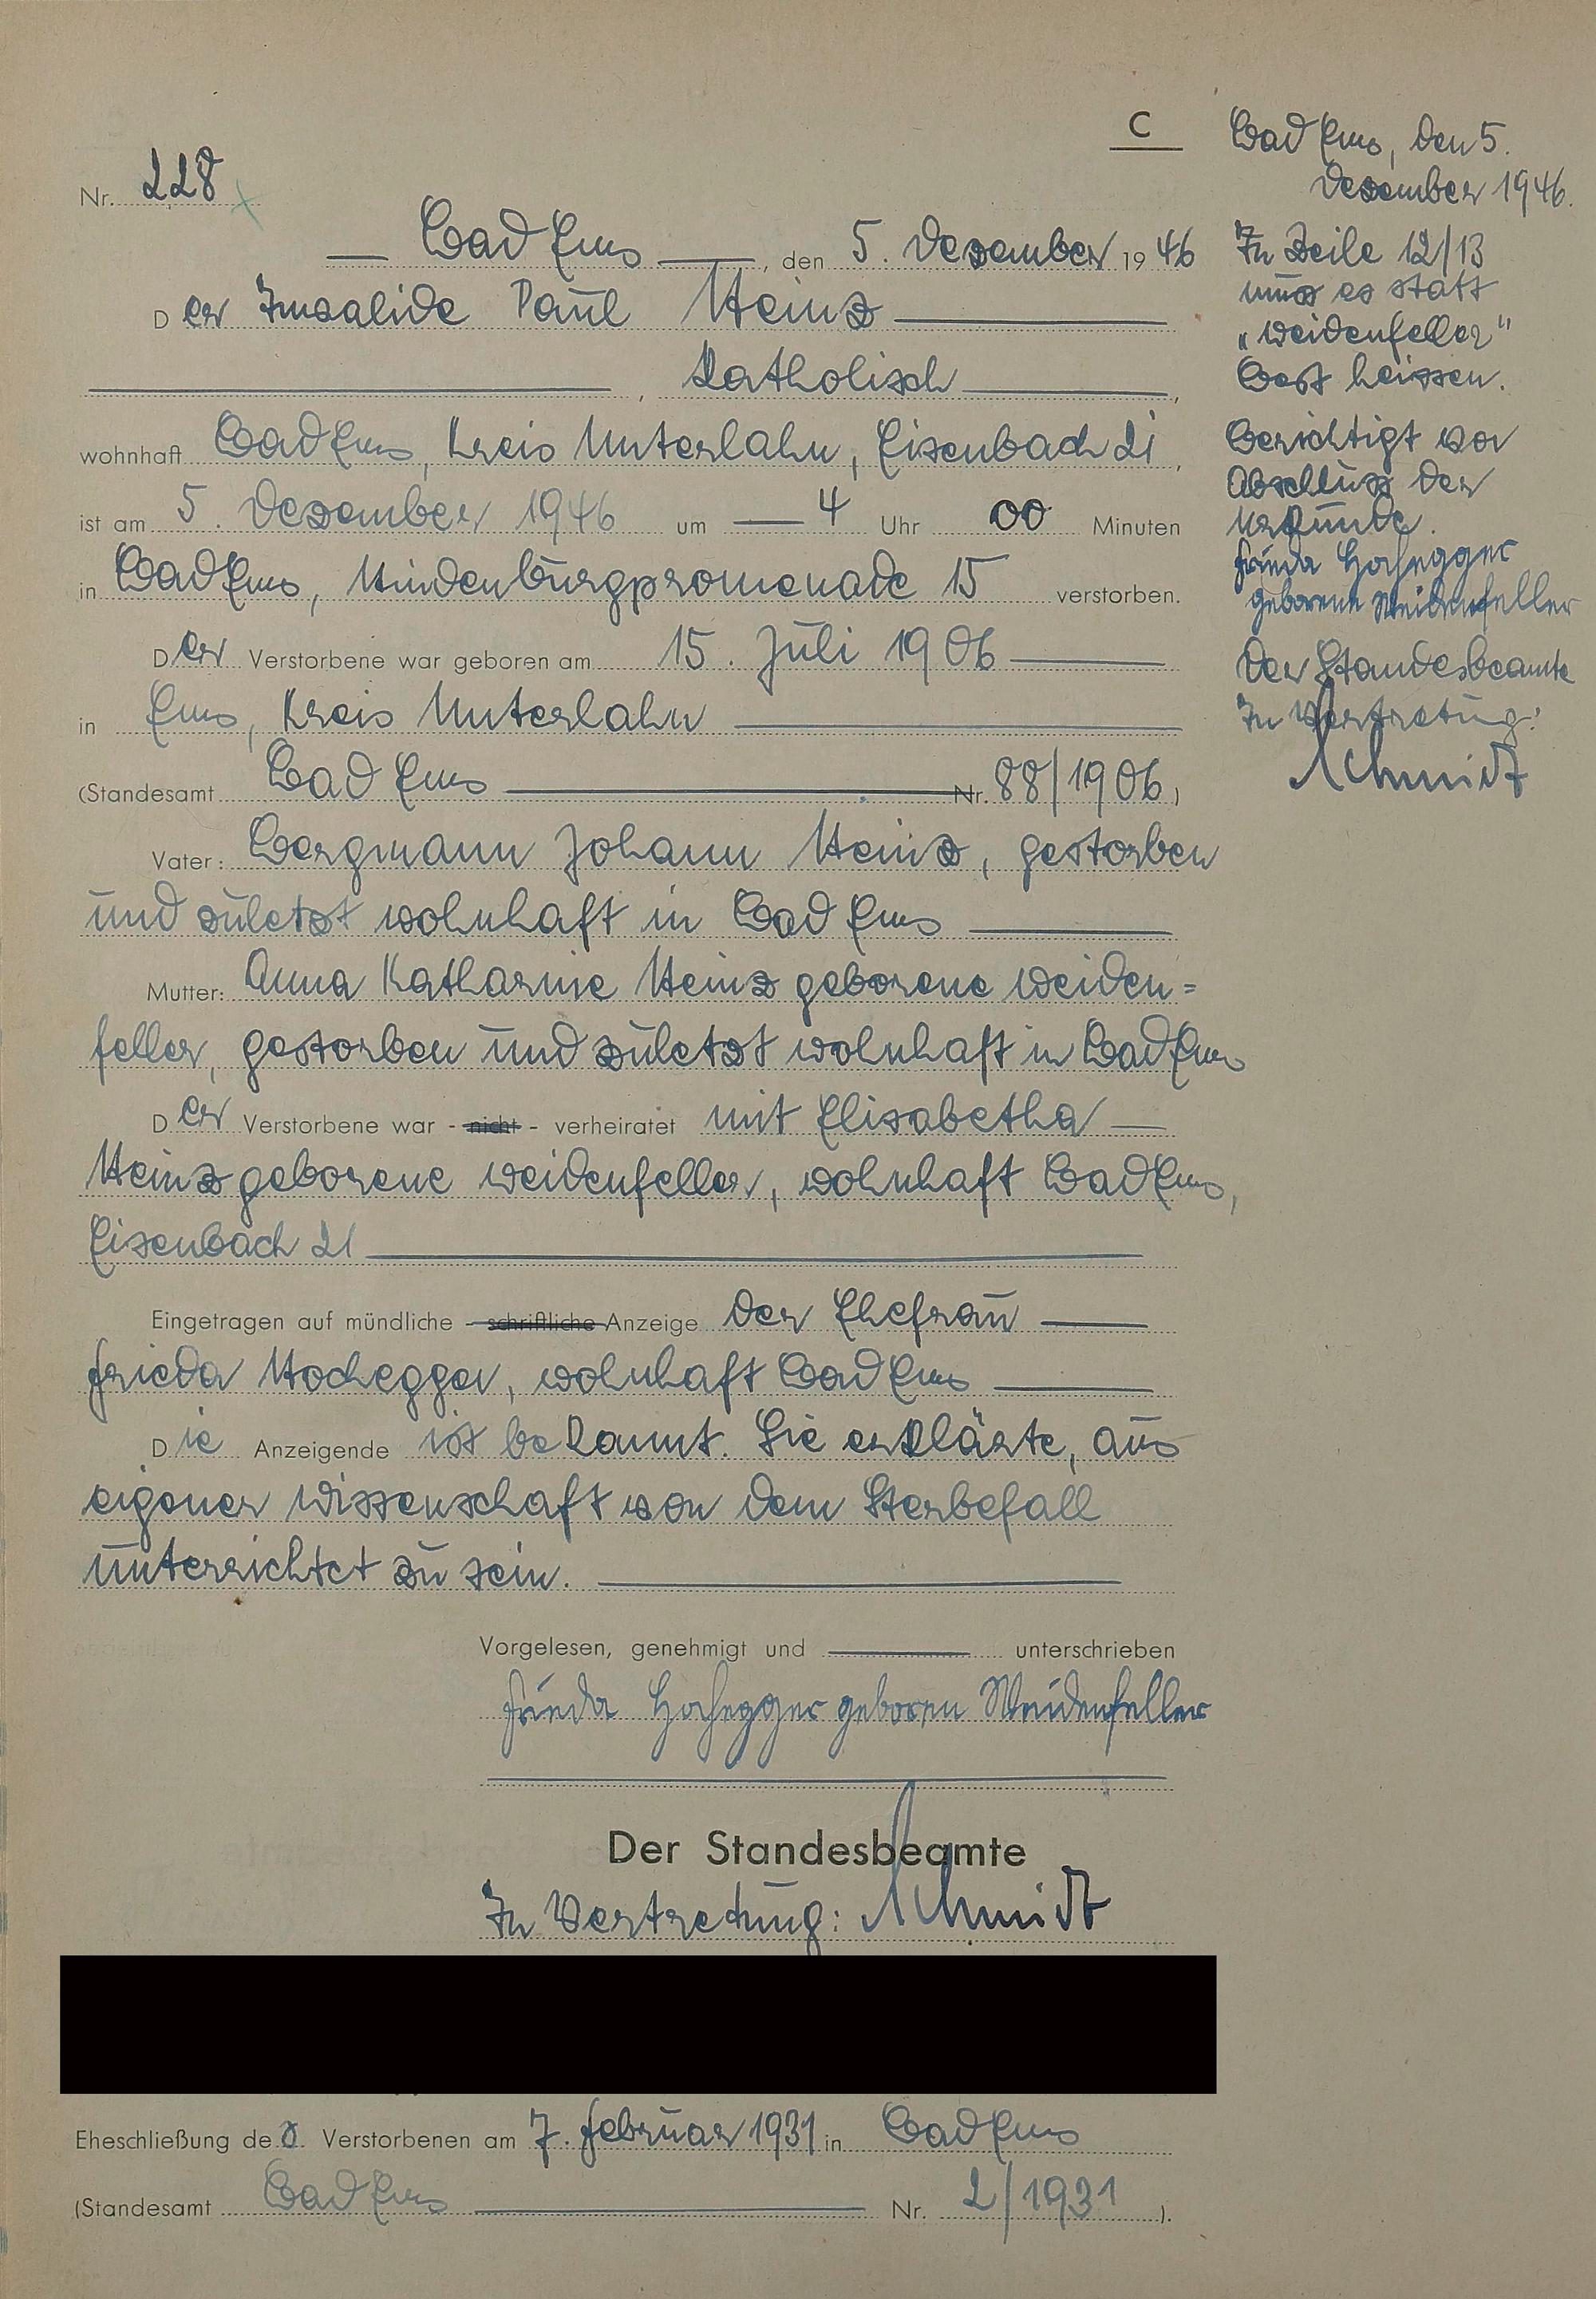 C
Nr. 228
Bad Ems, den 5. Dezember 1946
Der Invalide Paul Heinz
, katholisch,
wohnhaft Bad Ems, Kreis Unterlahn, Eisenbach 21,
ist am 5. Dezember 1946 um 4 Uhr 00 Minuten
in Bad Ems, Hindenburgpromenade 15 verstorben.
Der Verstorbene war geboren am 15. Juli 1906
in Ems, Kreis Unterlahn
(Standesamt Bad Ems Nr. 88/1906)
Vater: Bergmann Johann Heinz, gestorben
und zuletzt wohnhaft in Bad Ems
Mutter: Anna Katharine Heinz geborene Weiden=
feller, gestorben und zuletzt wohnhaft in Bad Ems
Der Verstorbene war - nicht - verheiratet mit Elisabetha
Heinz geborene Weidenfeller, wohnhaft Bad Ems,
Eisenbach 21
Eingetragen auf mündliche - schriftliche Anzeige der Ehefrau
Frieda Hochegger, wohnhaft Bad Ems
Die Anzeigende ist bekannt. Sie erklärte, aus
eigener Wissenschaft von dem Sterbefall
unterrichtet zu sein.
Vorgelesen, genehmigt und unterschrieben
Frieda Hochegger geboren Weidenfeller
Der Standesbeamte
In Vertretung: Schmidt
Eheschließung des Verstorbenen am 7. Februar 1931 in Bad Ems
(Standesamt Bad Ems Nr. 2/1931).
Bad Ems, den 5.
Dezember 1946.
In Zeile 12/13
muss es statt
„Weidenfeller"
Best heissen.
Berichtigt vor
Abschluss der
Urkunde.
Frieda Hochegger
geborene Weidenfeller
Der Standesbeamte
In Vertretung:
Schmidt